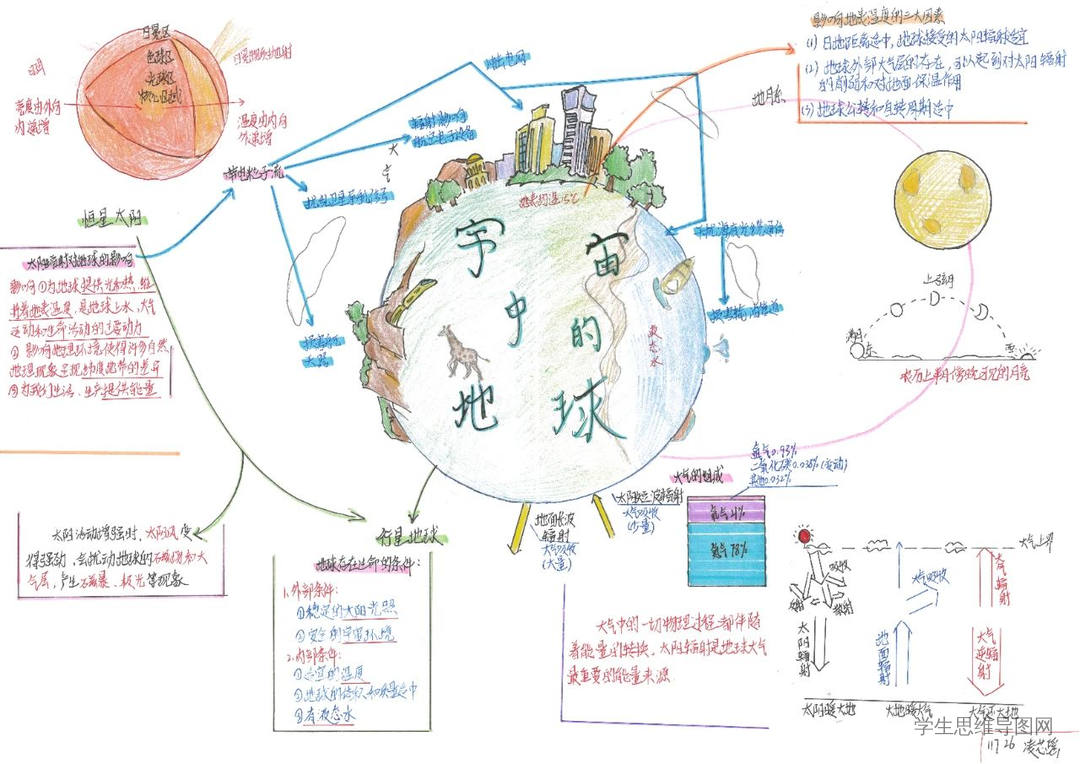 日冕区
色球区
光球区
日冕物质抛射
密度由外向
内递增
温度由内向
外递增
带电粒子流
恒星 太阳
太阳辐射对地球的影响
影响①为地球提供光和热，维
持着地表温度，是地球上水、大气
运动和生命活动的主要动力
② 影响地理环境使得许多自然
地理现象呈现纬度地带的差异
③为我们生活、生产提供能量
太阳活动增强时，太阳风变
得强劲，会扰动地球的磁场和大
气层，产生磁暴、极光等现象
干扰卫星导航信号
太
空
宇
宙
中
的
地
球
地表均温15℃
液态水
地月系
影响地表温度的三大因素
(1) 日地距离适中，地球接受的太阳辐射适宜
(2) 地球外部大气层的存在，可以起到对太阳辐射
的削弱和对地面保温作用
(3) 地球公转和自转周期适中
上弦月
东
西
农历上半月傍晚可见的月亮
行星 地球
地球存在生命的条件：
1.外部条件：
①稳定的太阳光照
②安全的宇宙环境
2.内部条件：
①适宜的温度
②地球的体积和质量适中
③有液态水
地面长波
辐射
大气吸收
(大量)
太阳短波辐射
大气吸收
(少量)
大气的组成
氩气0.93%
二氧化碳0.038%(变动)
其他0.032%
氧气21%
氮气78%
大气中的一切物理过程都伴随
着能量的转换，太阳辐射是地球大气
最重要的能量来源
大气上界
吸收
反射
散射
太阳辐射
大气吸收
地面辐射
大气辐射
大气逆辐射
太阳暖大地
大地暖大气
大气还大地
学生思维导图网